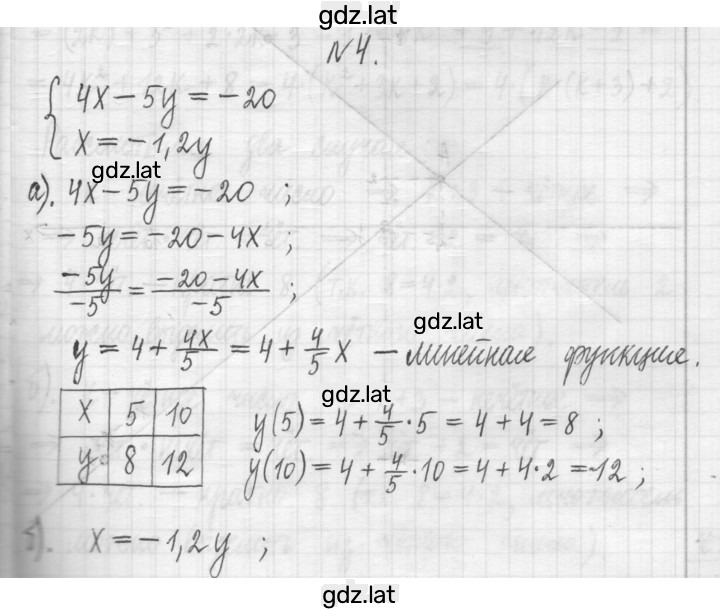 gdz.lat
N4.
{ 4x - 5y = -20
x = -1,2y
gdz.lat
а). 4x - 5y = -20 ;
-5y = -20 - 4x ;
-5y/-5 = -20 - 4x/-5 ;
gdz.lat
y = 4 + 4x/5 = 4 + 4/5 x - линейная функция.
x 5 10
y 8 12
y(5) = 4 + 4/5 · 5 = 4 + 4 = 8 ;
y(10) = 4 + 4/5 · 10 = 4 + 4 · 2 = 12 ;
б). x = -1,2y ;
gdz.lat